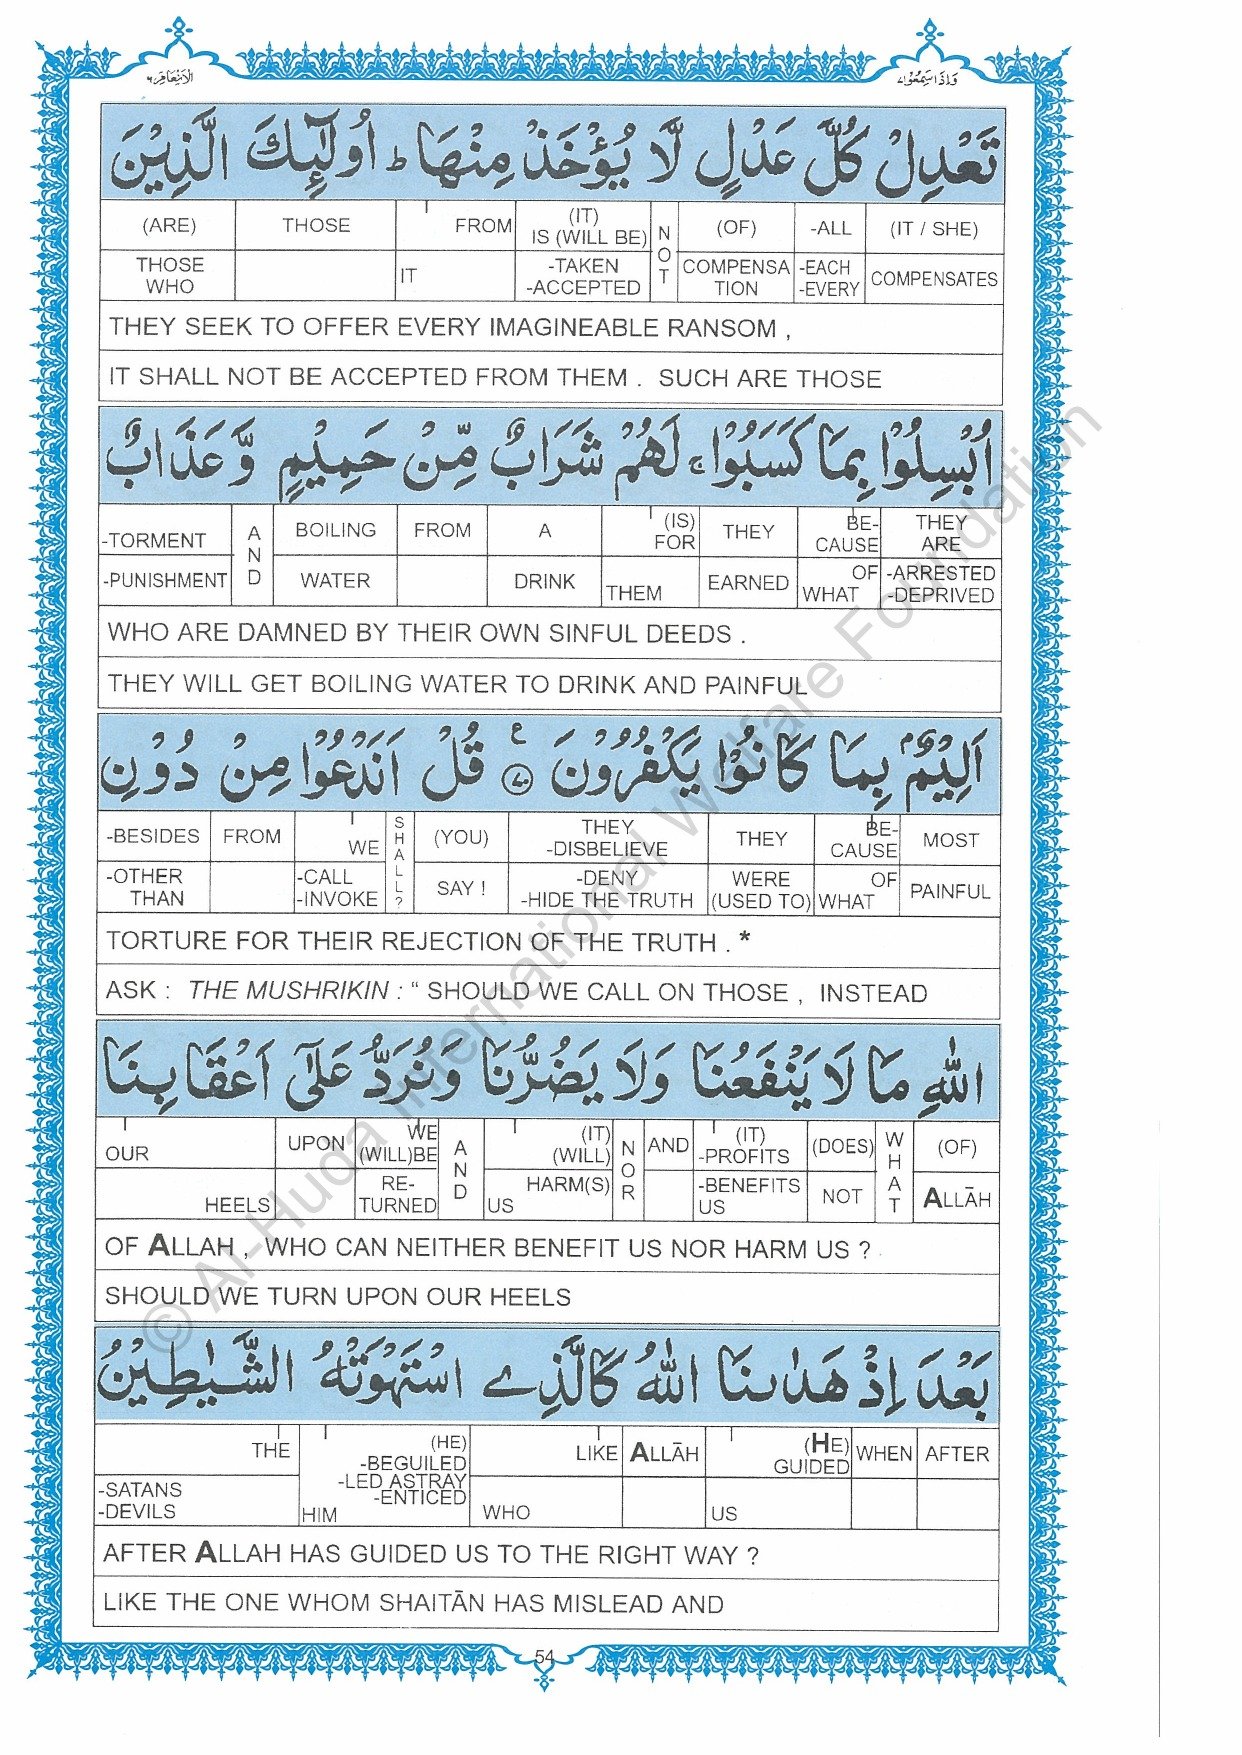 وَاِذَا سَمِعُوْا ٧
الْاَنْعَام ٦
تَعْدِلْ كُلَّ عَدْلٍ لَّا يُؤْخَذْ مِنْهَا ؕ اُولٰٓئِكَ الَّذِيْنَ
(IT / SHE) COMPENSATES
-ALL -EACH -EVERY
(OF) COMPENSA TION
NOT
(IT) IS (WILL BE) -TAKEN -ACCEPTED
FROM IT
THOSE
(ARE) THOSE WHO
THEY SEEK TO OFFER EVERY IMAGINEABLE RANSOM ,
IT SHALL NOT BE ACCEPTED FROM THEM . SUCH ARE THOSE
اُبْسِلُوْا بِمَا كَسَبُوْا ۚ لَهُمْ شَرَابٌ مِّنْ حَمِيْمٍ وَّعَذَابٌ
THEY ARE -ARRESTED -DEPRIVED
BE- CAUSE OF WHAT
THEY EARNED
(IS) FOR THEM
A DRINK
FROM
BOILING WATER
AND
-TORMENT -PUNISHMENT
WHO ARE DAMNED BY THEIR OWN SINFUL DEEDS .
THEY WILL GET BOILING WATER TO DRINK AND PAINFUL
اَلِيْمٌۢ بِمَا كَانُوْا يَكْفُرُوْنَ ۧ ﴿٧٠﴾ قُلْ اَنَدْعُوْا مِنْ دُوْنِ
MOST PAINFUL
BE- CAUSE OF WHAT
THEY WERE (USED TO)
THEY -DISBELIEVE -DENY -HIDE THE TRUTH
(YOU) SAY !
SHALL?
WE -CALL -INVOKE
FROM
-BESIDES -OTHER THAN
TORTURE FOR THEIR REJECTION OF THE TRUTH . *
ASK : THE MUSHRIKIN : “ SHOULD WE CALL ON THOSE , INSTEAD
اللّٰهِ مَا لَا يَنْفَعُنَا وَلَا يَضُرُّنَا وَنُرَدُّ عَلٰٓى اَعْقَابِنَا
(OF) ALLĀH
WHAT
(DOES) NOT
(IT) -PROFITS -BENEFITS US
AND
NOR
(IT) (WILL) HARM(S) US
AND
WE (WILL)BE RE- TURNED
UPON
OUR HEELS
OF ALLAH , WHO CAN NEITHER BENEFIT US NOR HARM US ?
SHOULD WE TURN UPON OUR HEELS
بَعْدَ اِذْ هَدٰىنَا اللّٰهُ كَالَّذِى اسْتَهْوَتْهُ الشَّيٰطِيْنُ
AFTER
WHEN
(HE) GUIDED US
ALLĀH
LIKE WHO
(HE) -BEGUILED -LED ASTRAY -ENTICED HIM
THE -SATANS -DEVILS
AFTER ALLAH HAS GUIDED US TO THE RIGHT WAY ?
LIKE THE ONE WHOM SHAITĀN HAS MISLEAD AND
54
© Al-Huda International Welfare Foundation